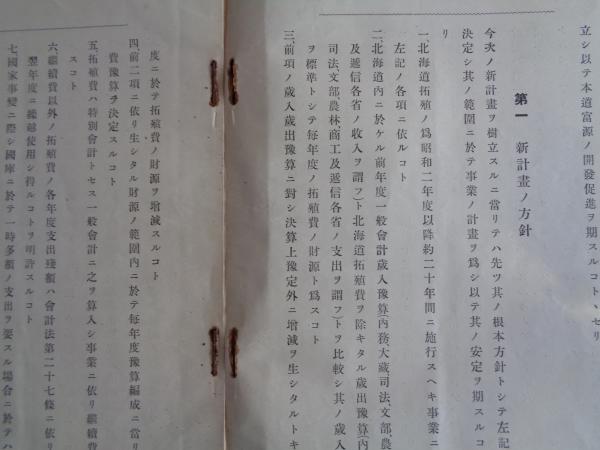 立シ以テ本道富源ノ開發促進ヲ期スルコトヽセリ
第一　新計畫ノ方針
今次ノ新計畫ヲ樹立スルニ當リテハ先ツ其ノ根本方針トシテ左記
決定シ其ノ範圍ニ於テ事業ノ計畫ヲ爲シ以テ其ノ安定ヲ期スルコ
リ
一、北海道拓殖ノ爲昭和二年度以降約二十年間ニ施行スヘキ事業ニ
左記ノ各項ニ依ルコト
二、北海道内ニ於ケル前年度一般會計歳入豫算(内務、大藏、司法、文部、農
及遞信各省ノ收入ヲ謂フ)ト北海道拓殖費ヲ除キタル歳出豫算(内
司法、文部、農林、商工及遞信各省ノ支出ヲ謂フ)トヲ比較シ其ノ歳入
ヲ標準トシテ毎年度ノ拓殖費ノ財源ト爲スコト
三、前項ノ歳入歳出豫算ニ對シ決算上豫定外ニ增減ヲ生シタルトキ
度ニ於テ拓殖費ノ財源ヲ增減スルコト
四、前二項ニ依リ生シタル財源ノ範圍内ニ於テ毎年度豫算編成ニ當リ
費豫算ヲ決定スルコト
五、拓殖費ハ特別會計トセス一般會計ニ之ヲ算入シ事業ニ依リ繼續費
スコト
六、繼續費以外ノ拓殖費ノ各年度支出殘額ハ會計法第二十七條ニ依リ
翌年度ニ繰越使用シ得ルコトヲ明許スルコト
七、國家事變ニ際シ國庫ニ於テ一時多額ノ支出ヲ要スル場合ニ於テハ